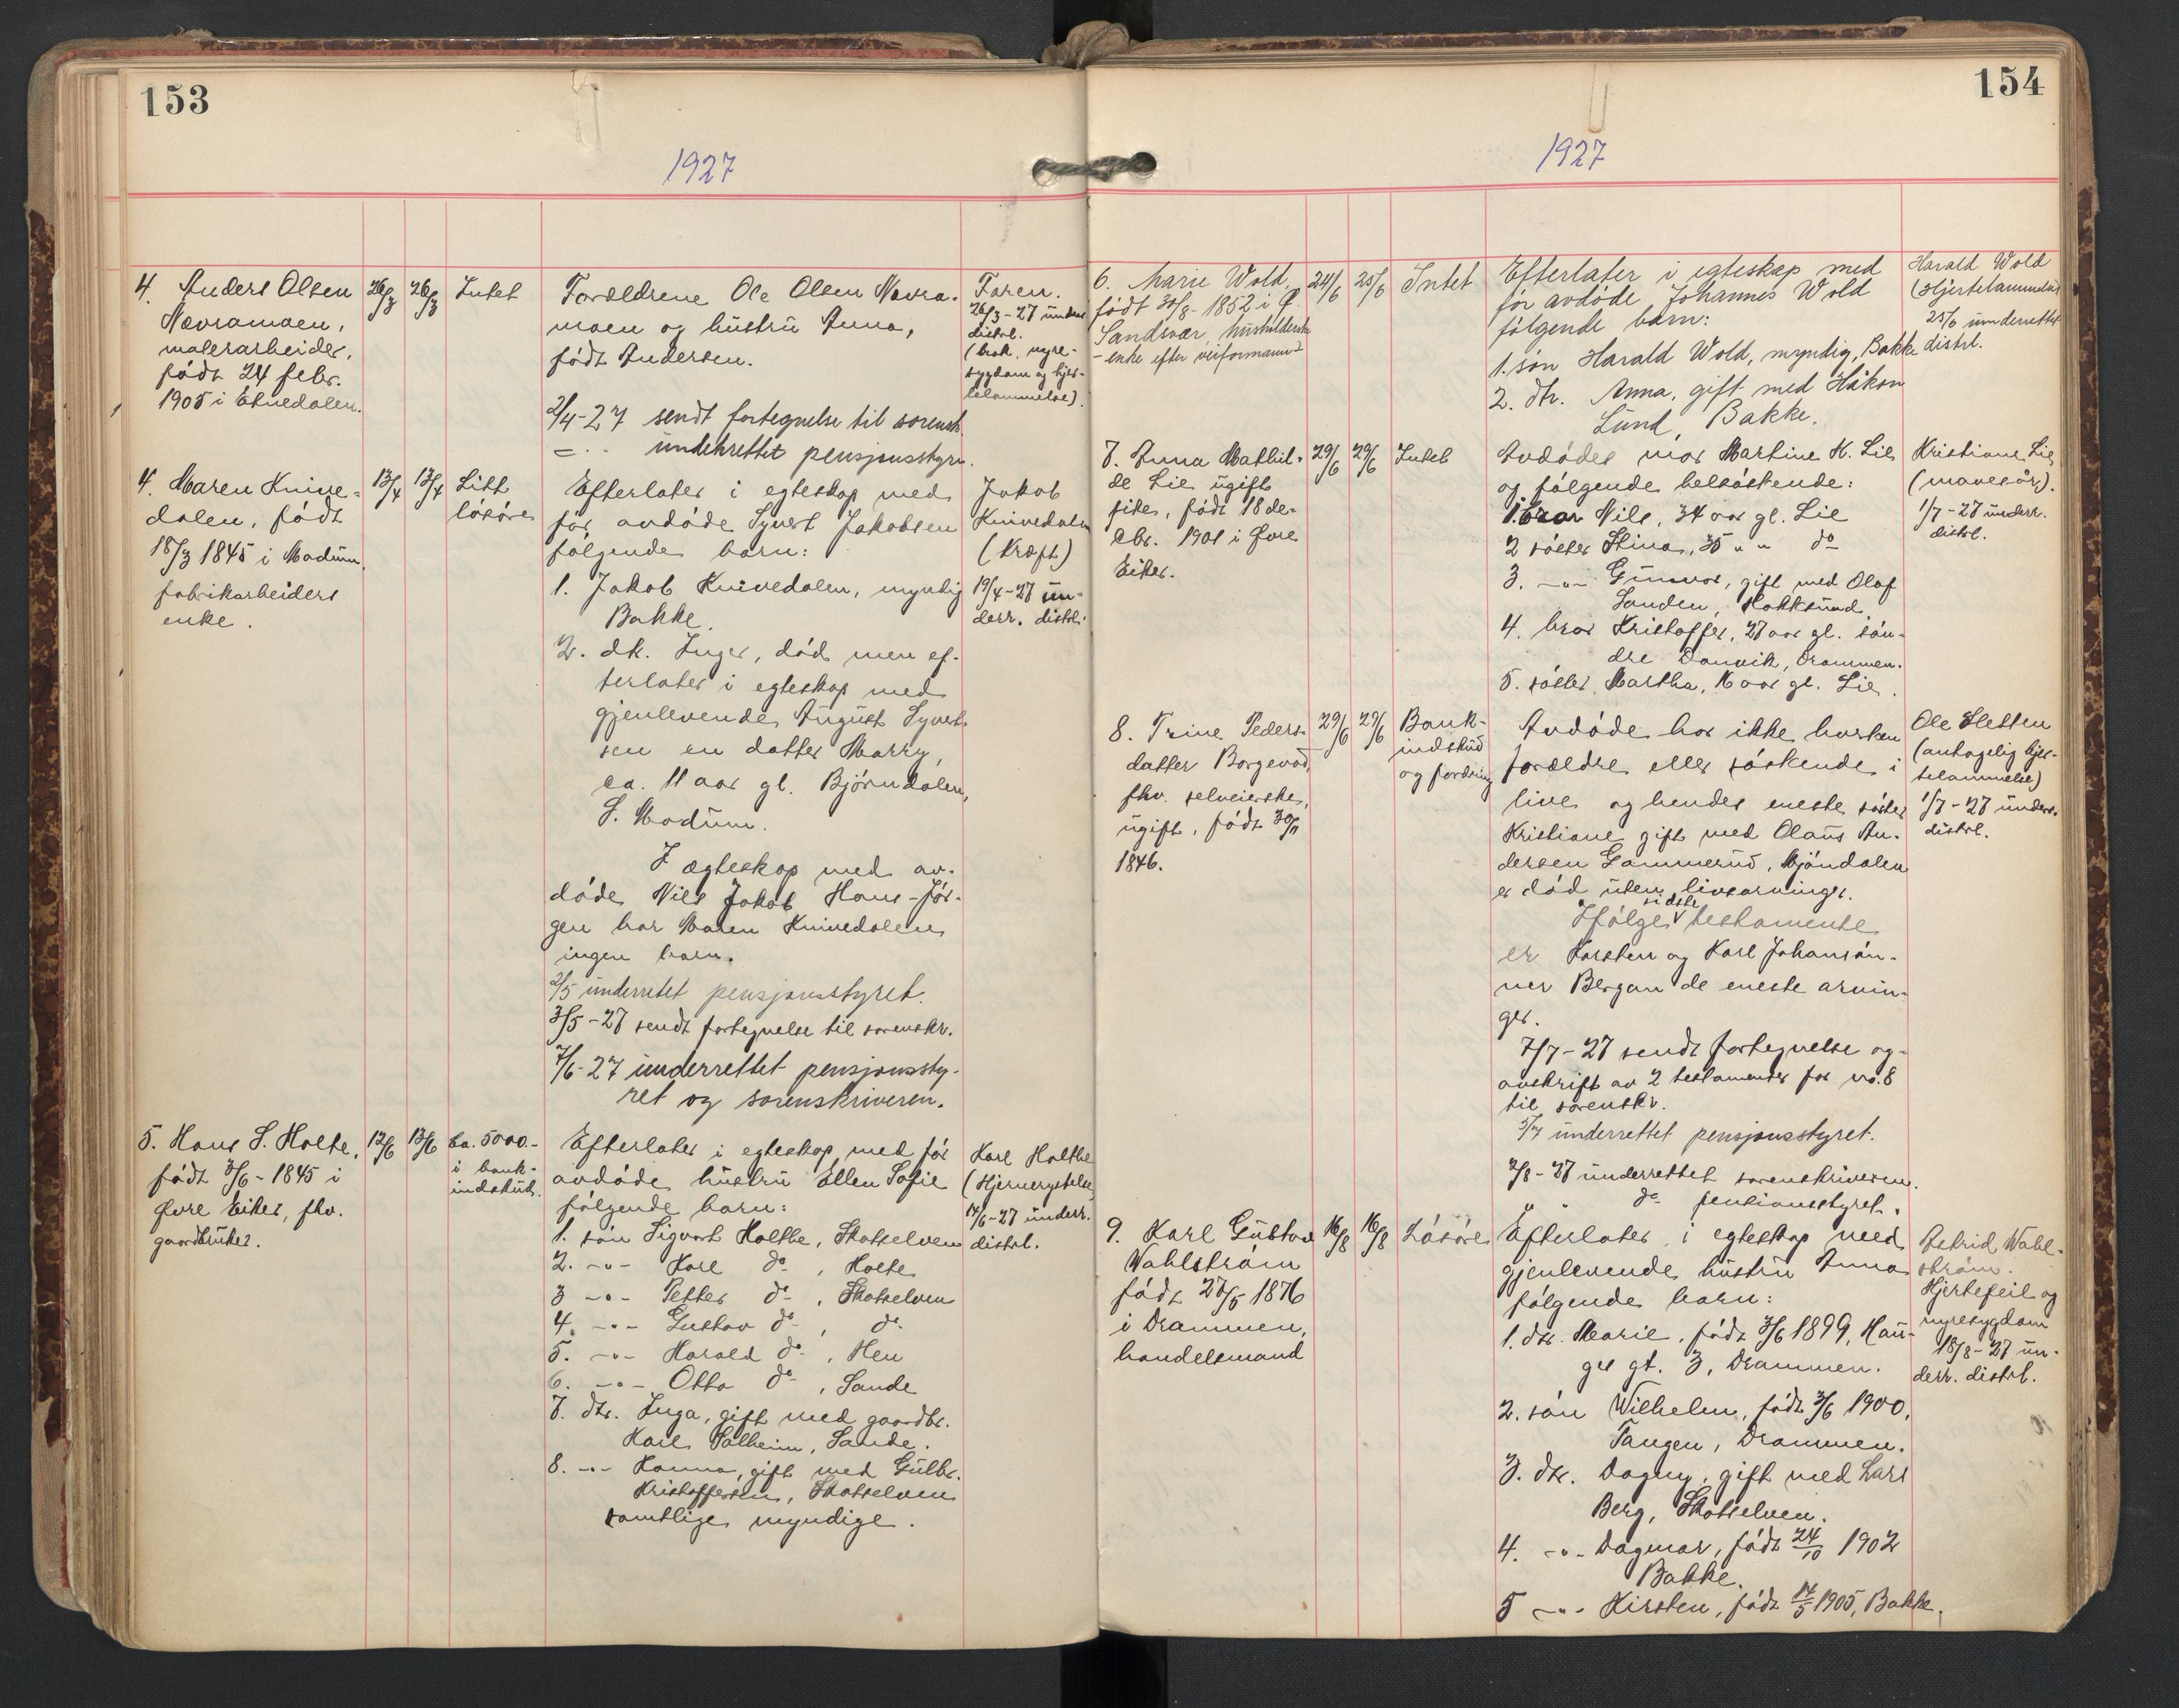 153
1927
4. Anders Olsen
Nævramoen,
malerarbeider,
født 24 febr.
1905 i Etnedalen.
26/3
26/3
Intet
Forældrene Ole Olsen Nævra-
moen og hustru Anna,
født Andersen.
2/4-27 sendt fortegnelse til sorensk.
underrettet pensjonsstyre.
Faren.
26/3-27 underr
distrl.
(brok, nyre-
sygdom og hjer-
telammelse).
4. Maren Knive-
dalen, født
18/3 1845 i Modum,
fabrikarbeiders
enke.
13/4
13/4
Litt
løsøre
Efterlater i egteskap med
før avdøde Syvert Jakobsen
følgende barn:
1. Jakob Knivedalen, myndig
Bakke.
2. dt. Inger, død men ef-
terlater i egteskap med
gjenlevende August Syvert-
sen en datter Marry,
ca. 11 aar gl. Bjørndalen,
S. Modum.
I ægteskap med av-
døde Nils Jakob Hans-Jør-
gen har Maren Knivedalen
ingen barn.
2/5 underretet pensjonsstyret.
3/5-27 sendt fortegnelse til sorenskr.
7/6-27 underrettet pensjonssty-
ret og sorenskriveren.
Jakob
Knivedalen
(Kræft)
19/4-27 un-
derr. distrl.
5. Hans S. Holte,
født 3/6-1845 i
Øvre Eiker, fhv.
gaardbruker.
12/6
13/6
Ca. 5000.-
i bank-
indskud.
Efterlater i egteskap med før
avdøde hustru Ellen Sofie
følgende barn:
1. søn Sigvart Holthe, Skotselven
2. -"- Karl do , Holte
3 -"- Petter do , Skotselven
4. -"- Gustav do , do
5. -"- Harald do , Hen
6. -"- Otto do , Sande
7. dtr. Inga, gift med gaardbr.
Karl Solheim, Sande.
8. -"- Hanna, gift med Gulbr.
Kristoffersen, Skotselven
samtlige myndige.
Karl Holthe
(Hjernerystelse)
14/6-27 underr.
distrl.
154
1927
6. Marie Wold,
født 31/8-1852 i Ø.
Sandsvær, husholderske
- enke efter veiformann -
24/6
25/6
Intet
Efterlater i egteskap med
før avdøde Johannes Wold
følgende barn:
1. søn Harald Wold, myndig, Bakke
2. dtr. Anna, gift med Håkon
Lund, Bakke.
Harald Wold
(Hjertelammelse)
25/6 underrettet
distrl.
7. Anna Mathil-
de Lie ugift
pike, født 18 de-
cbr. 1901 i Øvre
Eiker.
29/6
29/6
Intet
Avdødes mor Martine K. Lie
og følgende helsøskende:
1. bror Nils, 34 aar gl. Lie
2 søster Stina, 35 " " do
3. -"- Gunvor, gift med Olaf
Sanden, Hokksund.
4. bror Kristoffer, 27 aar gl. søn-
dre Danvik, Drammen.
5. søster Martha, 16 aar gl. Lie.
Kristiane Lie
(mavesår).
1/7-27 underr.
distrl.
8. Trine Peders-
datter Borgevad,
fhv. selveierske,
ugift, født 30/11
1846.
29/6
29/6
Bank-
indskud
og fordring
Avdøde har ikke hverken
forældre eller søskende i
live og hendes eneste søster
Kristiane gift med Olaus An-
dersen Gammerud, Mjøndalen
er død uten livsarvinger.
Ifølge sidste testamente
er Karsten og Karl Johansøn-
ner Bergan de eneste arvin-
ger.
7/7-27 sendt fortegnelse og
avskrift av 2 testamenter for no. 8
til sorenskr.
5/7 underrettet pensjonsstyret.
2/8-27 underrettet sorenskriveren.
" " do pensionsstyret.
Ole Sletten
(antagelig hjer-
telammelse)
1/7-27 underr.
distrl.
9. Karl Gustav
Wahlstrøm
født 27/5 1876
i Drammen,
handelsmand
16/8
16/8
Løsøre
Efterlater i egteskap med
gjenlevende hustru Anna
følgende barn:
1. dtr. Marie, født 3/6 1899, Hau-
ges gt. 3, Drammen.
2. søn Wilhelm, født 3/6 1900,
Tangen, Drammen.
3. dtr. Dagny, gift med Lars
Berg, Skotselven.
4. -"- Dagmar, født 24/10 1902
Bakke.
5 -"- Kirsten, født 14/5 1905, Bakke.
Astrid Wahl-
strøm.
Hjertefeil og
nyresygdom
18/8-27 un-
derr. distrl.